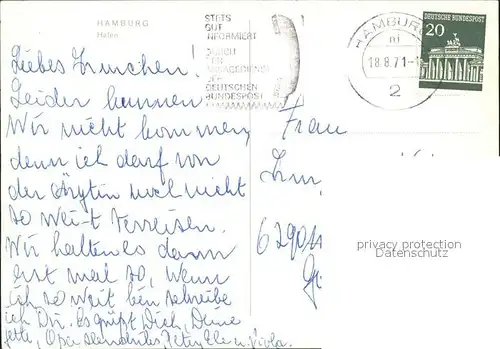 HAMBURG
Hafen
STETS
GUT
INFORMIERT
DURCH
DEN
ANSAGEDIENST
DER
DEUTSCHEN
BUNDESPOST
HAMBURG
18.8.71-1
2
DEUTSCHE BUNDESPOST
20
Liebes Irmchen!
Leider kannen
Wir nicht kommen,
denn ich darf von
der Ärztin noch nicht
so wei-t verreisen.
Wir halten es dann
erst mal so, Wenn
ich so Weit bin schreibe
ich Dir. Es grüßt Dich, Deine
Opa
Frau
Irm
6290
privacy protection
Datenschutz